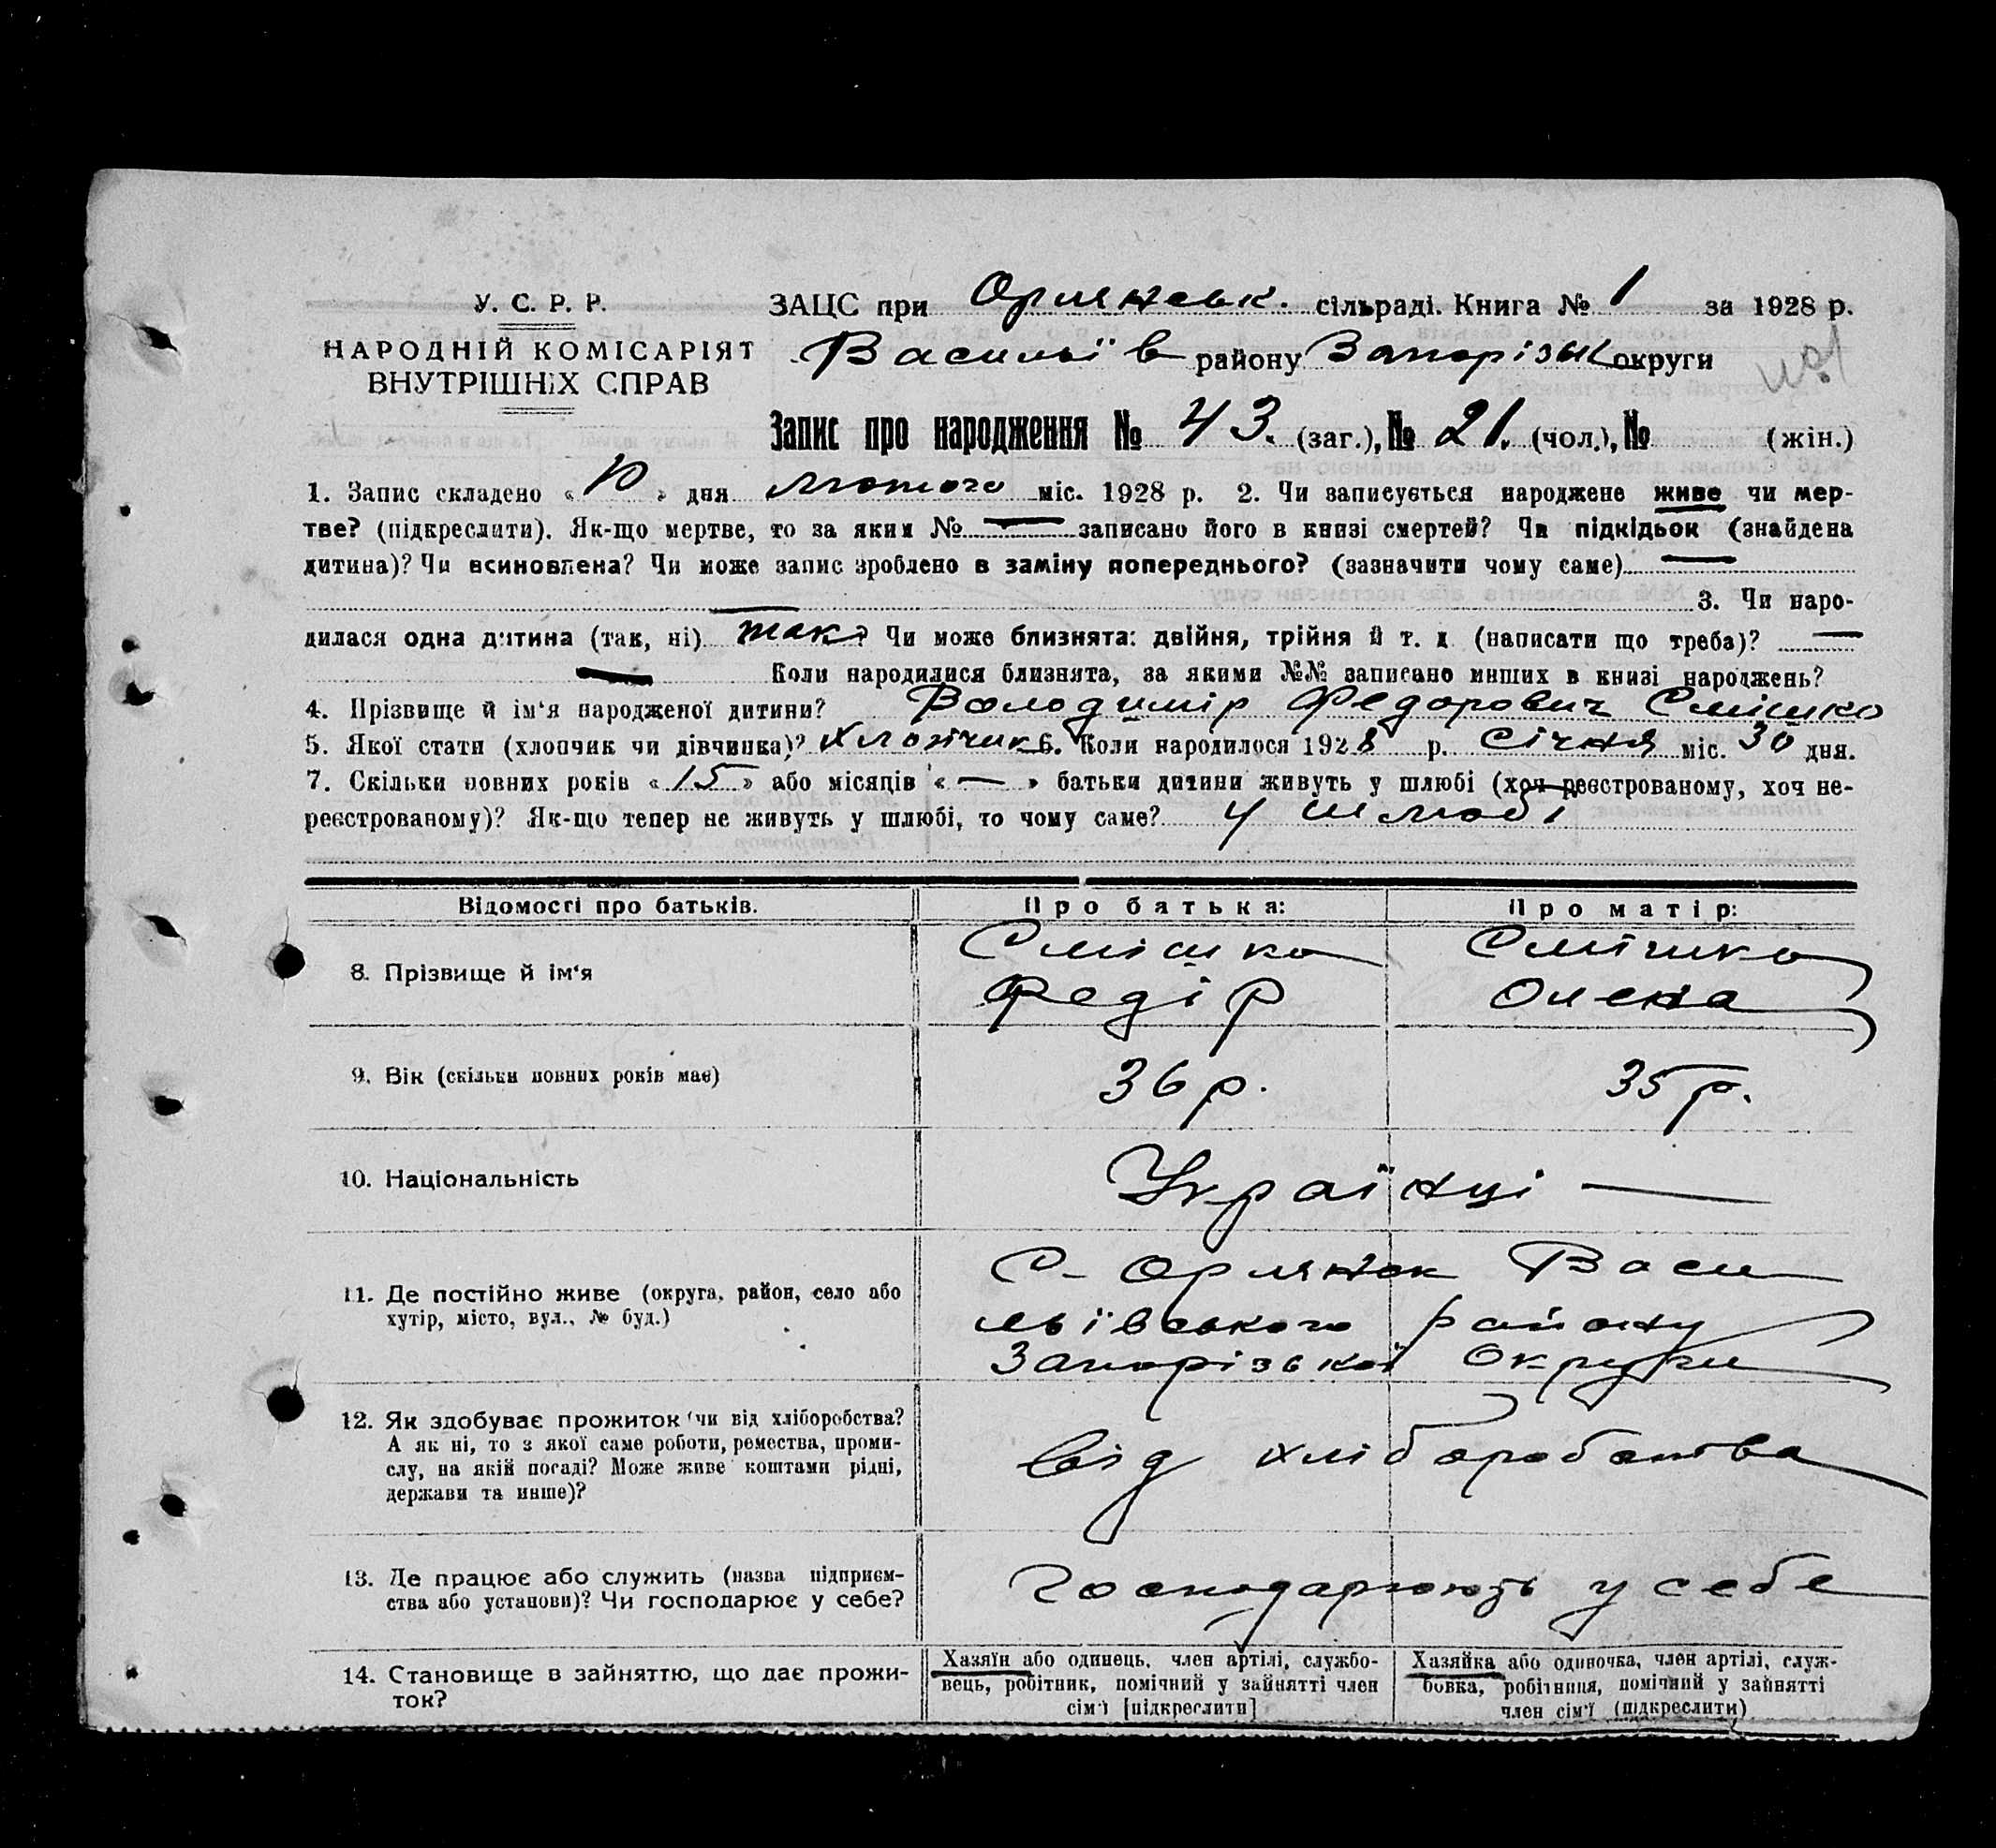 У. С. Р. Р.
НАРОДНІЙ КОМІСАРІЯТ
ВНУТРІШНІХ СПРАВ
ЗАЦС при Орлянськ. сільраді. Книга № 1 за 1928 р.
Васильїв району Запорізьк округи
Запис про народження № 43. (заг.), № 21. (чол.), № (жін.)
1. Запис складено « 10 » дня лютого міс. 1928 р. 2. Чи записується народжене живе чи мер-
тве? (підкреслити). Як-що мертве, то за яким № — записано його в книзі смертей? Чи підкідьок (знайдена
дитина)? Чи всиновлена? Чи може запис зроблено в заміну попереднього? (зазначити чому саме) —
— 3. Чи наро-
дилася одна дитина (так, ні) так Чи може близнята: двійня, трійня й т. д. (написати що треба)? —
— Коли народилися близнята, за якими №№ записано инших в книзі народжень?
4. Прізвище й ім‘я народженої дитини? Володимір Федорович Смішко
5. Якої стати (хлопчик чи дівчинка)? Хлопчик 6. Коли народилося 1928 р. Січня міс. 30 дня.
7. Скільки повних років « 15 » або місяців « — » батьки дитини живуть у шлюбі (хоч реєстрованому, хоч не-
реєстрованому)? Як-що тепер не живуть у шлюбі, то чому саме? У шлюбі
Відомості про батьків. Про батька: Про матір:
8. Прізвище й ім‘я
Смішко
Федір
Смішко
Олена
9. Вік (скільки повних років має) 36 р. 35 р.
10. Національність Українці —
11. Де постійно живе (округа, район, село або
хутір, місто, вул., № буд.)
С- Орлянск Васи
льївського району
Запорізької Округи
12. Як здобуває прожиток (чи від хліборобства?
А як ні, то з якої саме роботи, ремества, проми-
слу, на якій посаді? Може живе коштами рідні,
держави та инше)?
від хліборобства
13. Де працює або служить (назва підприєм-
ства або установи)? Чи господарює у себе?
Господарюють у себе
14. Становище в зайняттю, що дає прожи-
ток?
Хазяїн або одинець, член артілі, службо-
вець, робітник, помічний у зайнятті член
сім‘ї [підкреслити]
Хазяйка або одиночка, член артілі, служ-
бовка, робітниця, помічний у зайнятті
член сім‘ї (підкреслити)